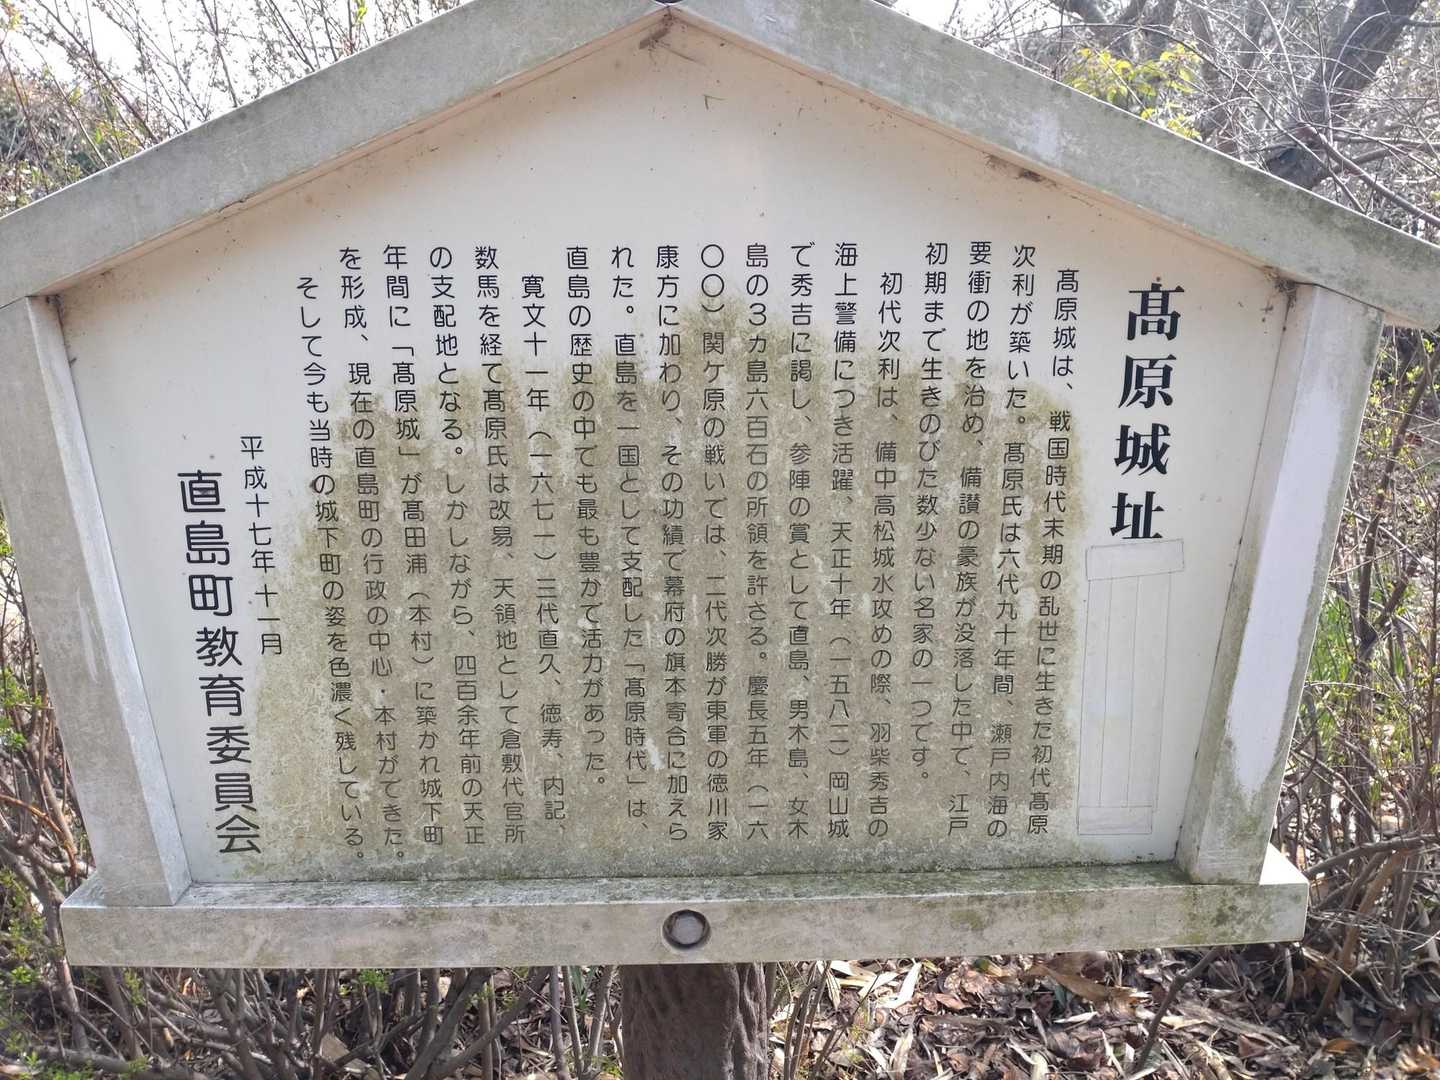 髙原城址
髙原城は、戦国時代末期の乱世に生きた初代髙原
次利が築いた。髙原氏は六代九十年間、瀬戸内海の
要衝の地を治め、備讃の豪族が没落した中で、江戸
初期まで生きのびた数少ない名家の一つです。
初代次利は、備中高松城水攻めの際、羽柴秀吉の
海上警備につき活躍、天正十年（一五八二）岡山城
で秀吉に謁し、参陣の賞として直島、男木島、女木
島の３カ島六百石の所領を許さる。慶長五年（一六
〇〇）関ケ原の戦いでは、二代次勝が東軍の徳川家
康方に加わり、その功績で幕府の旗本寄合に加えら
れた。直島を一国として支配した「髙原時代」は、
直島の歴史の中でも最も豊かで活力があった。
寛文十一年（一六七一）三代直久、徳寿、内記、
数馬を経て髙原氏は改易、天領地として倉敷代官所
の支配地となる。しかしながら、四百余年前の天正
年間に「髙原城」が髙田浦（本村）に築かれ城下町
を形成、現在の直島町の行政の中心・本村ができた。
そして今も当時の城下町の姿を色濃く残している。
平成十七年十一月
直島町教育委員会